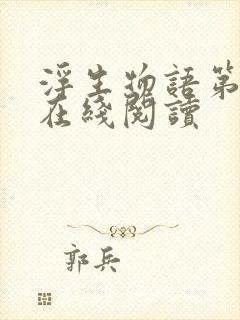 浮生物語第
在綫閱讀
郭兵